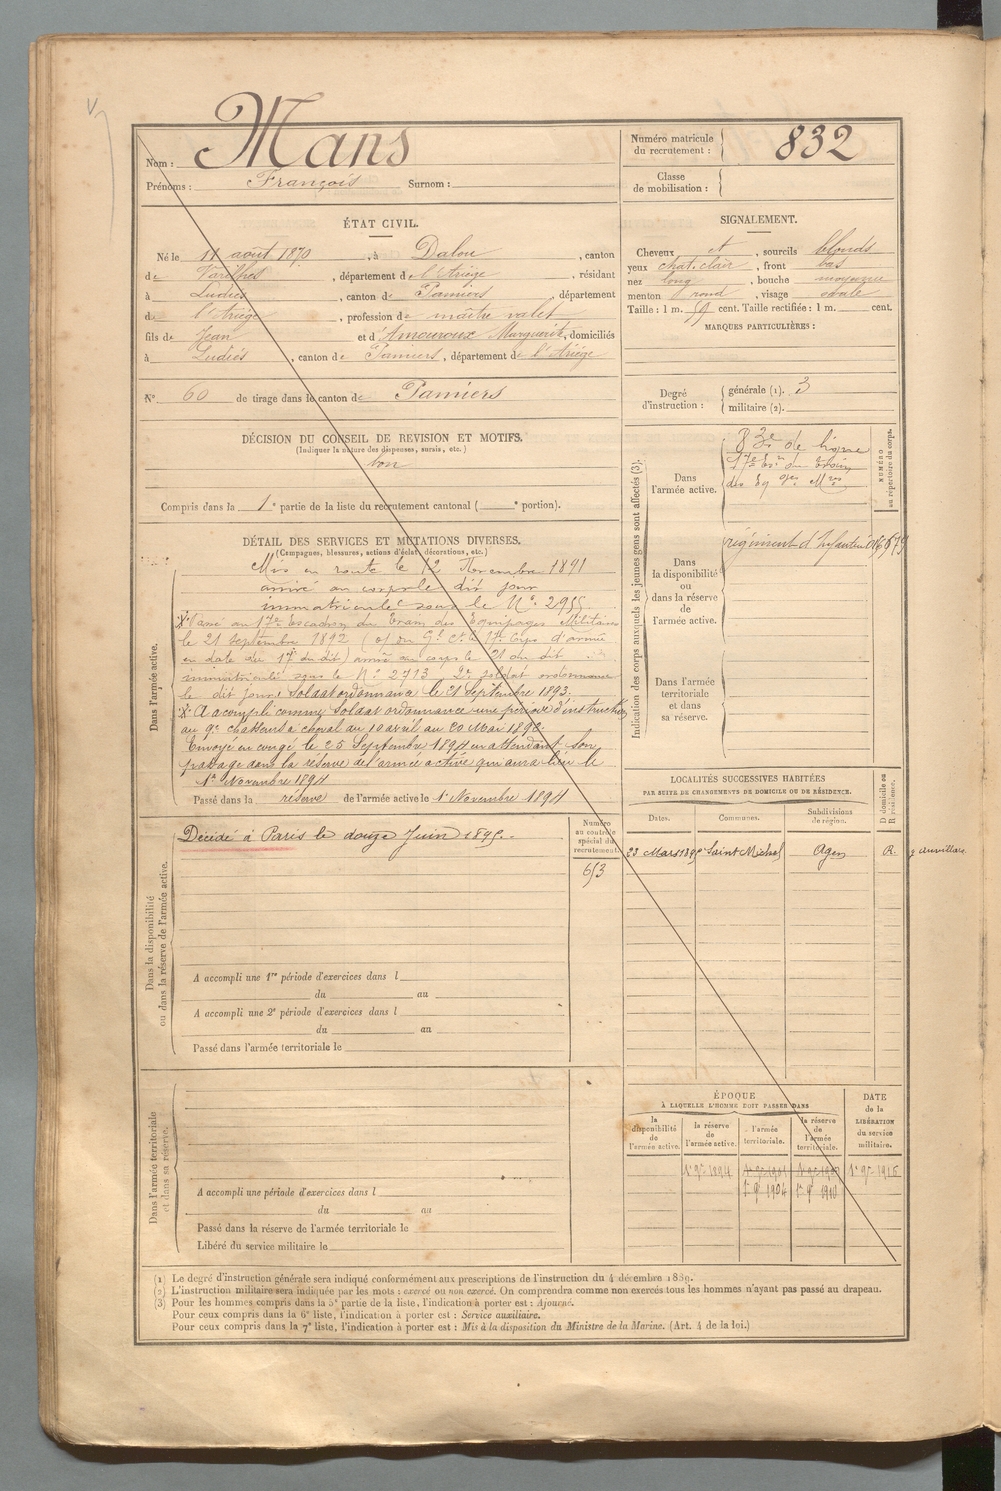 Nom : Mans
Prénoms : François Surnom :
Numéro matricule du recrutement : 832
Classe de mobilisation :
ÉTAT CIVIL.
Né le 11 août 1870, à Dalou, canton
de Varilhes, département de l'Ariège, résidant
à Ludiès, canton de Pamiers, département
de l'Ariège, profession de maître valet
fils de Jean et d'Amouroux Marguerite, domiciliés
à Ludiès, canton de Pamiers, département de l'Ariège
N° 60 de tirage dans le canton de Pamiers
SIGNALEMENT.
Cheveux et, sourcils blonds
yeux chat. clair, front bas
nez long, bouche moyenne
menton rond, visage ovale
Taille : 1 m. 59 cent. Taille rectifiée : 1 m. cent.
MARQUES PARTICULIÈRES :
Degré d'instruction : générale (1). 3
militaire (2).
DÉCISION DU CONSEIL DE REVISION ET MOTIFS.
(Indiquer la nature des dispenses, sursis, etc.)
bon
Compris dans la 1e partie de la liste du recrutement cantonal ( e portion).
DÉTAIL DES SERVICES ET MUTATIONS DIVERSES.
(Campagnes, blessures, actions d'éclat, décorations, etc.)
Dans l'armée active.
Mis en route le 12 Novembre 1891
arrivé au corps le dit jour
immatriculé sous le N°
Passé au 17e Escadron du Train des Equipages Militaires
le 21 septembre 1892 ( du Gl Ct le 17e Corps d'armée
en date du 17 du dit) arrivé au corps le 21 du dit
immatriculé sous le N° 2713 2e soldat ordonnance
le dit jour. Soldat ordonnance le 21 Septembre 1893.
A accompli comme Soldat ordonnance une période d'instruction
au 9e chasseurs à cheval du 10 avril au 20 Mai
Envoyé en congé le 25 Septembre 1894 en attendant son
passage dans la réserve de l'armée active qui aura lieu le
1er Novembre 1894
Passé dans la réserve de l'armée active le 1er Novembre 1894
Indication des corps auxquels les jeunes gens sont affectés (3).
NUMÉRO au répertoire du corps.
Dans l'armée active.
83e de ligne
17e Eson du train
des Eqages Mres
Dans la disponibilité ou dans la réserve de l'armée active.
régiment d'Infanterie
Dans l'armée territoriale et dans sa réserve.
Dans la disponibilité ou dans la réserve de l'armée active.
Décédé à Paris le douze Juin 1895.
Numéro au contrôle spécial du recrutement.
653
A accompli une 1re période d'exercices dans l
du au
A accompli une 2e période d'exercices dans l
du au
Passé dans l'armée territoriale le
LOCALITÉS SUCCESSIVES HABITÉES
PAR SUITE DE CHANGEMENTS DE DOMICILE OU DE RÉSIDENCE.
Dates. Communes. Subdivisions de région. D domicile ou R résidence.
23 Mars 1895 Saint Michel Agen R. Auvillars
Dans l'armée territoriale et dans sa réserve.
A accompli une période d'exercices dans l
du au
Passé dans la réserve de l'armée territoriale le
Libéré du service militaire le
ÉPOQUE
À LAQUELLE L'HOMME DOIT PASSER DANS
la disponibilité de l'armée active. la réserve de l'armée active. l'armée territoriale. la réserve de l'armée territoriale.
DATE de la LIBÉRATION du service militaire.
1er 9bre 1894
1er 9bre 1904 1er 9bre 1910
(1) Le degré d'instruction générale sera indiqué conformément aux prescriptions de l'instruction du 4 décembre 1889.
(2) L'instruction militaire sera indiquée par les mots : exercé ou non exercé. On comprendra comme non exercés tous les hommes n'ayant pas passé au drapeau.
(3) Pour les hommes compris dans la 5e partie de la liste, l'indication à porter est : Ajourné.
Pour ceux compris dans la 6e liste, l'indication à porter est : Service auxiliaire.
Pour ceux compris dans la 7e liste, l'indication à porter est : Mis à la disposition du Ministre de la Marine. (Art. 4 de la loi.)